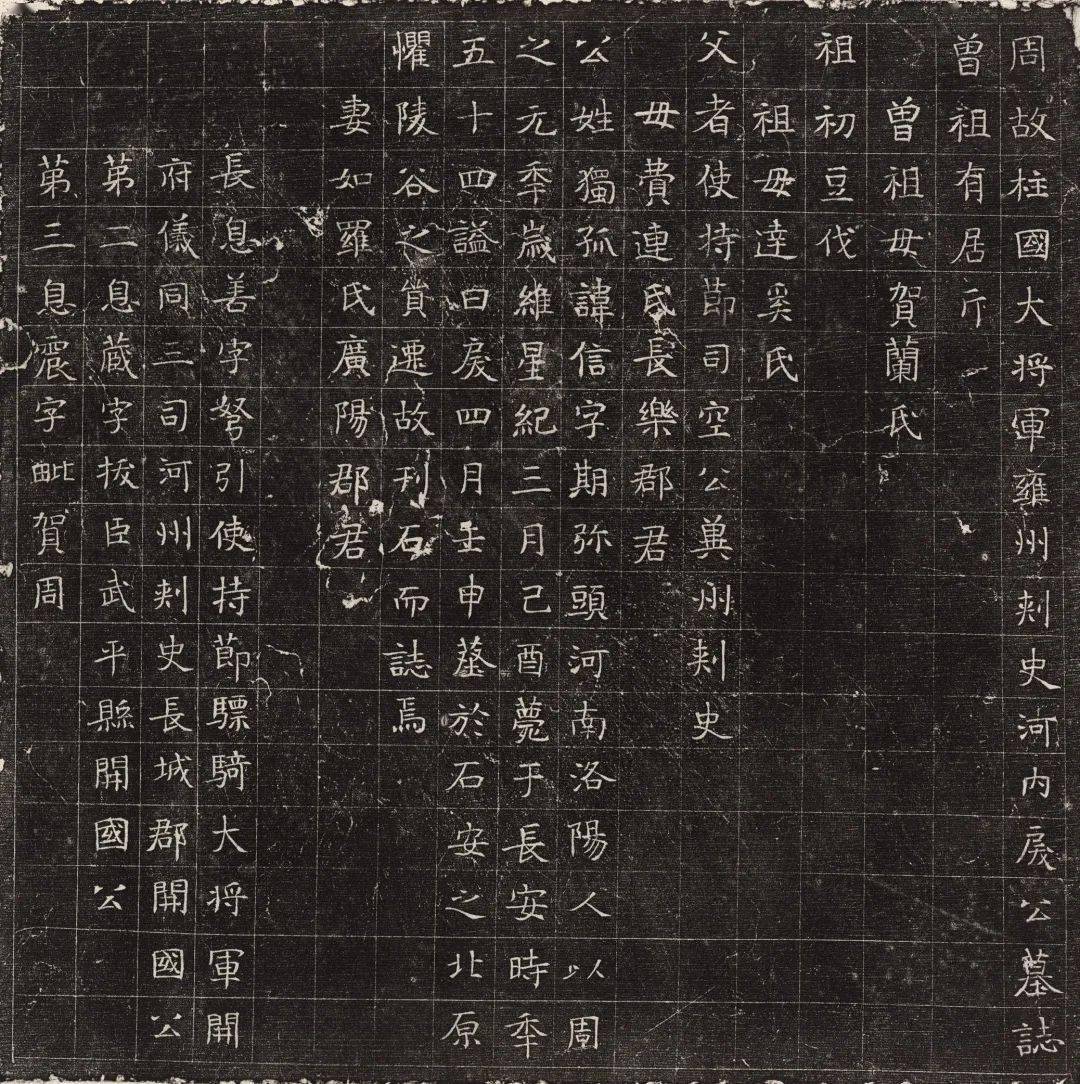 周故柱國大將軍雍州刾史河內戾公墓誌
曾祖有居斤
曾祖母賀蘭氏
祖初豆伐
祖母達奚氏
父者使持節司空公冀州刾史
母費連氏長樂郡君
公姓獨孤諱信字期弥頭河南洛陽人以周
之元年歲維星紀三月己酉薨于長安時年
五十四謚曰戾四月壬申葬於石安之北原
懼陵谷之貿遷故刊石而誌焉
妻如羅氏廣陽郡君
長息善字弩引使持節驃騎大將軍開
府儀同三司河州刾史長城郡開國公
第二息藏字拔臣武平縣開國公
第三息震字毗賀周